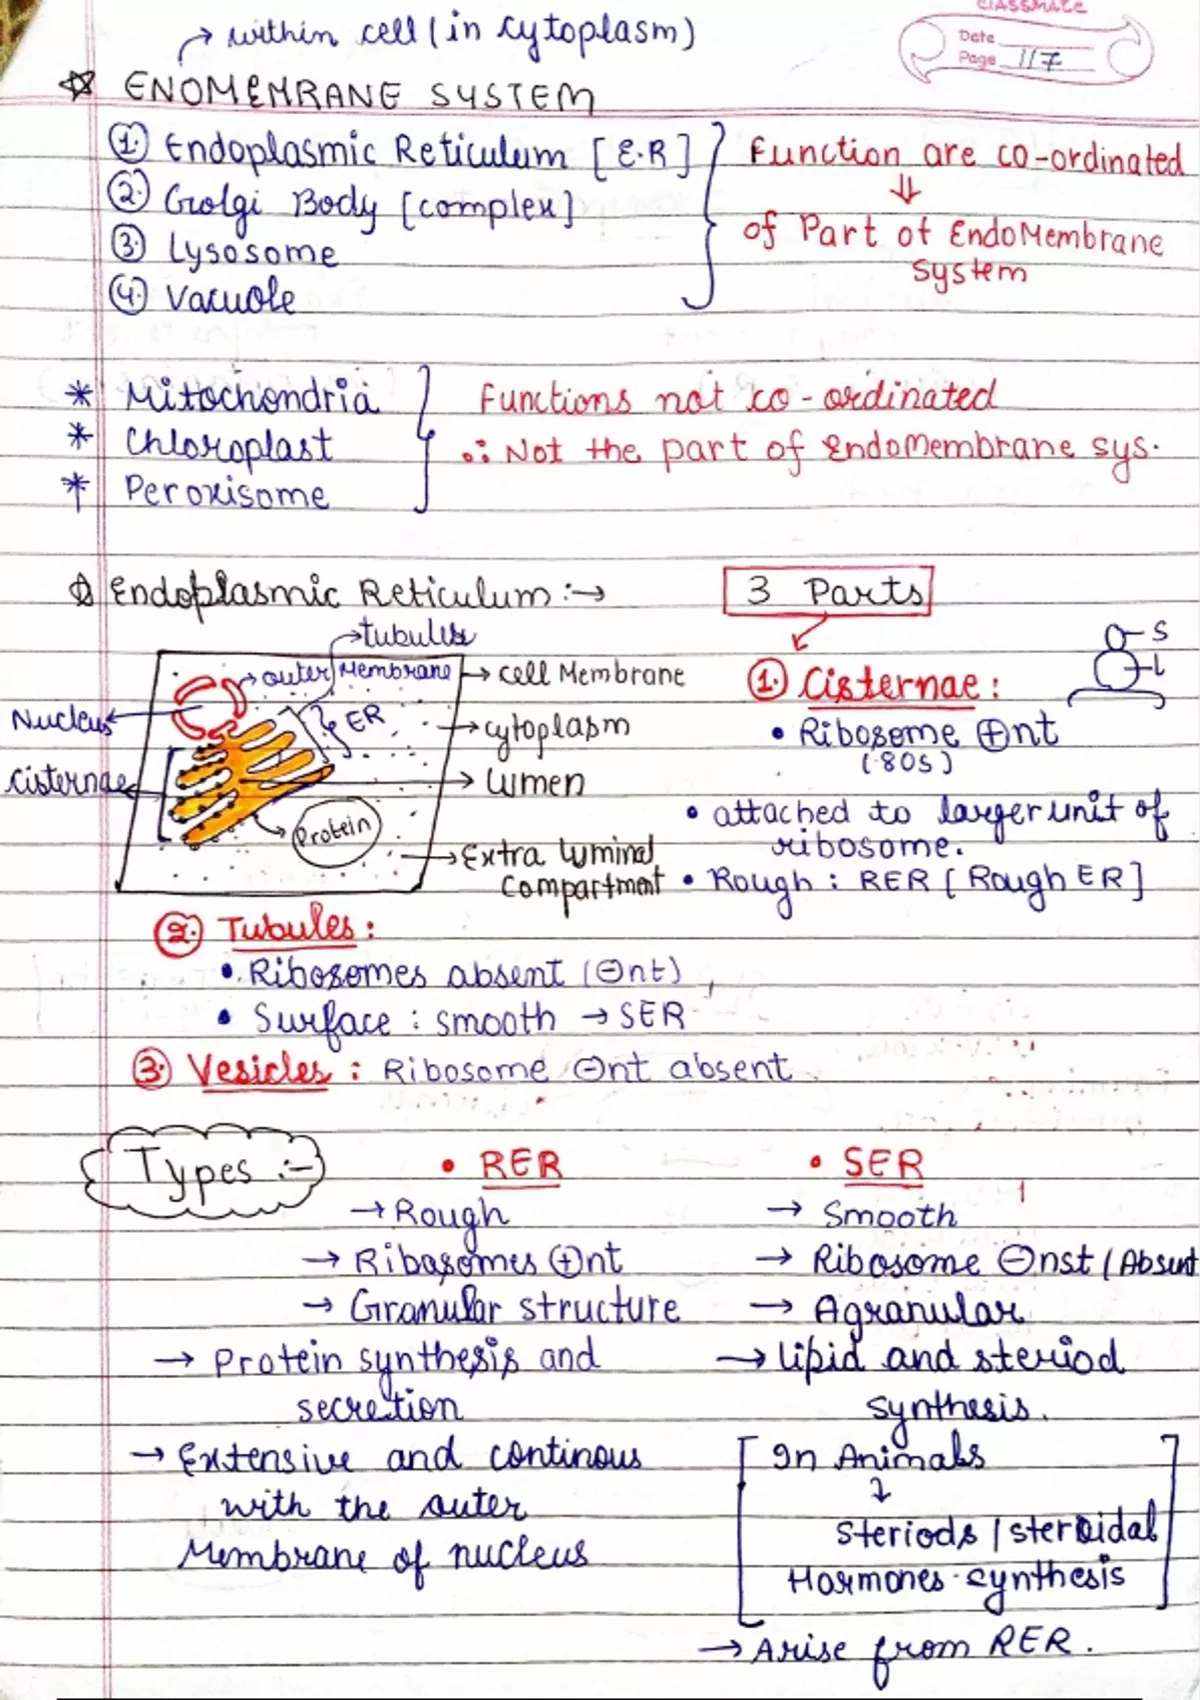 classmate
Date
Page 117
→ within cell (in cytoplasm)
☆ ENOMEMRANE SYSTEM
1. Endoplasmic Reticulum [E.R]
2. Golgi Body [complex]
3. Lysosome
4. Vacuole
Function are co-ordinated
⇓
of Part of EndoMembrane
System
* Mitochondria
* Chloroplast
* Peroxisome
Functions not co-ordinated
∴ Not the part of EndoMembrane sys.
☆ Endoplasmic Reticulum :→
→ tubules
→ outer Membrane
→ cell Membrane
Nucleus
ER
→ cytoplasm
cisternae
→ Lumen
Protein
→ Extra luminal
compartment
3 Parts
S
L
1. Cisternae :
• Ribosome ⊕nt
(80S)
• attached to larger unit of
ribosome.
• Rough : RER [Rough ER]
2. Tubules :
• Ribosomes absent (⊖nt)
• Surface : smooth → SER
3. Vesicles : Ribosome ⊖nt absent
Types :-
• RER
→ Rough
→ Ribosomes ⊕nt
→ Granular structure
→ Protein synthesis and
secretion
→ Extensive and continous
with the outer
Membrane of nucleus
• SER
→ Smooth
→ Ribosome ⊖nst (Absent
→ Agranular
→ lipid and steriod
synthesis.
[In Animals
↓
Steriods / steroidal
Hormones synthesis]
→ Arise from RER.